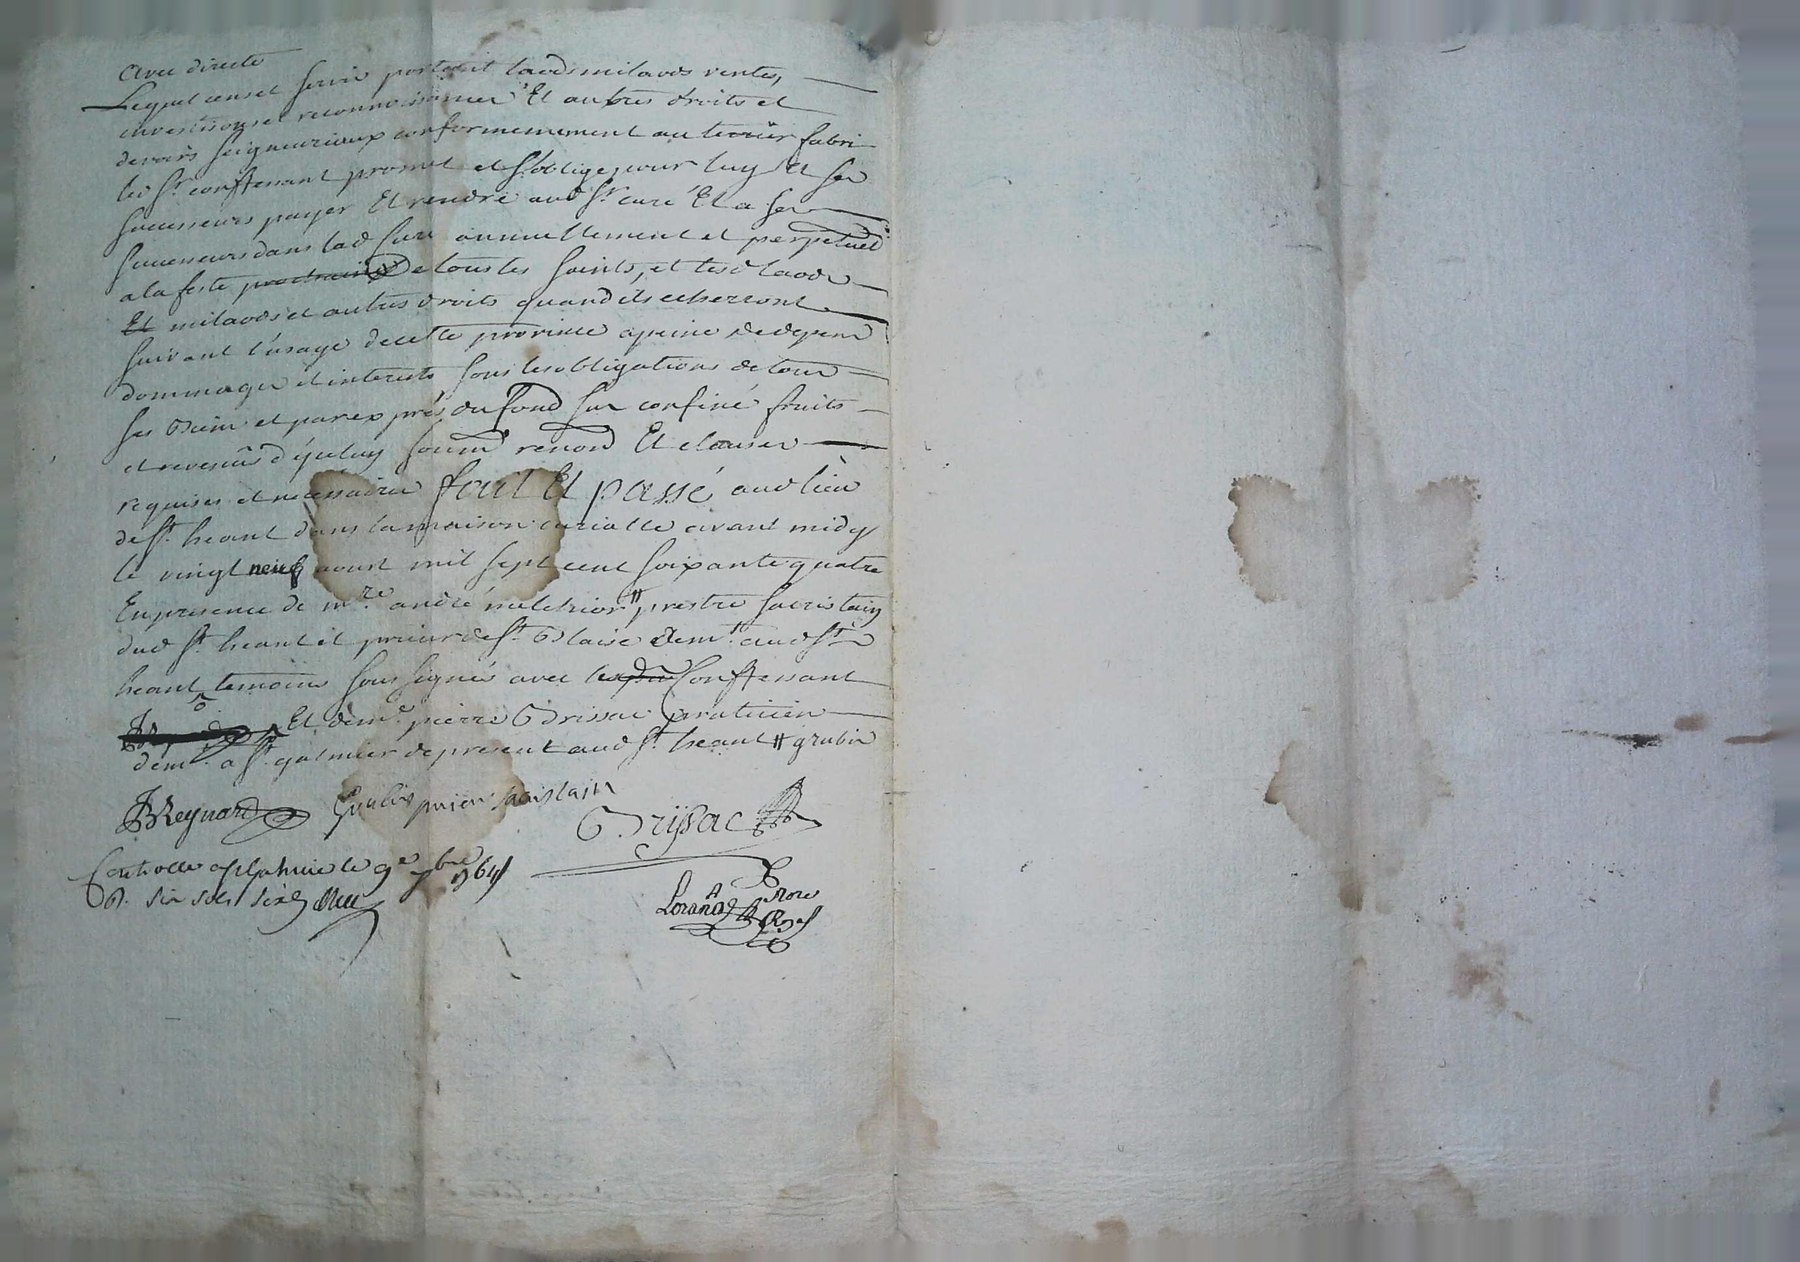 avec directe
Lequel cens et servis portent laods milaods ventes,
investisons et reconnoissances Et autres droits et
devoirs seigneuriaux conformemement au terrier fabri
led sr. confessant promet et s'oblige pour luy Et ses
successeurs payer Et rendre aud sr. curé Et a ses
successeurs dans lad Cure annuellement et perpetuel
a la feste prochaine De tous les saints, et lesd laods
Et milaods et autres droits quand ils echerront
suivant l'usage de cette province a peine de depens
dommages et interests sous les obligations de tous
ses Biens et par exprés du fond sus confiné fruits
et revenûs d'yceluy soum renon Et clauses
requises et necessaires fait Et passé aud lieu
de st. heant dans la maison curialle avant midy
le vingt neuf aoust mil sept cent soixante quatre
En presence de mre. andré melchior # prestre sacristain
dud st. heant et prieur de st. Blaise dem.t aud st.
heant temoins soussignés avec Confessant
Et de me. pierre Brissac praticien
dem.t a st. galmier de present aud st. heant # grubis
JB Reynard Grubis prieur sacristain
Brissac
Controllé a st galmier le 9e 7bre 1764
R. six sols six d
Loranã
Nore
Roy